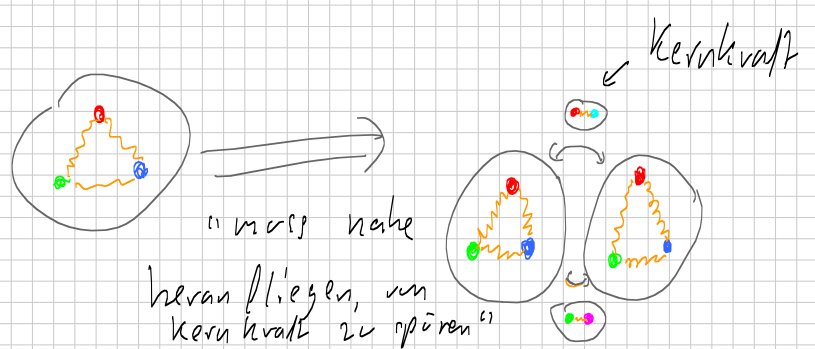 Kernkraft
"muss nahe
heranfliegen, um
Kernkraft zu spüren"